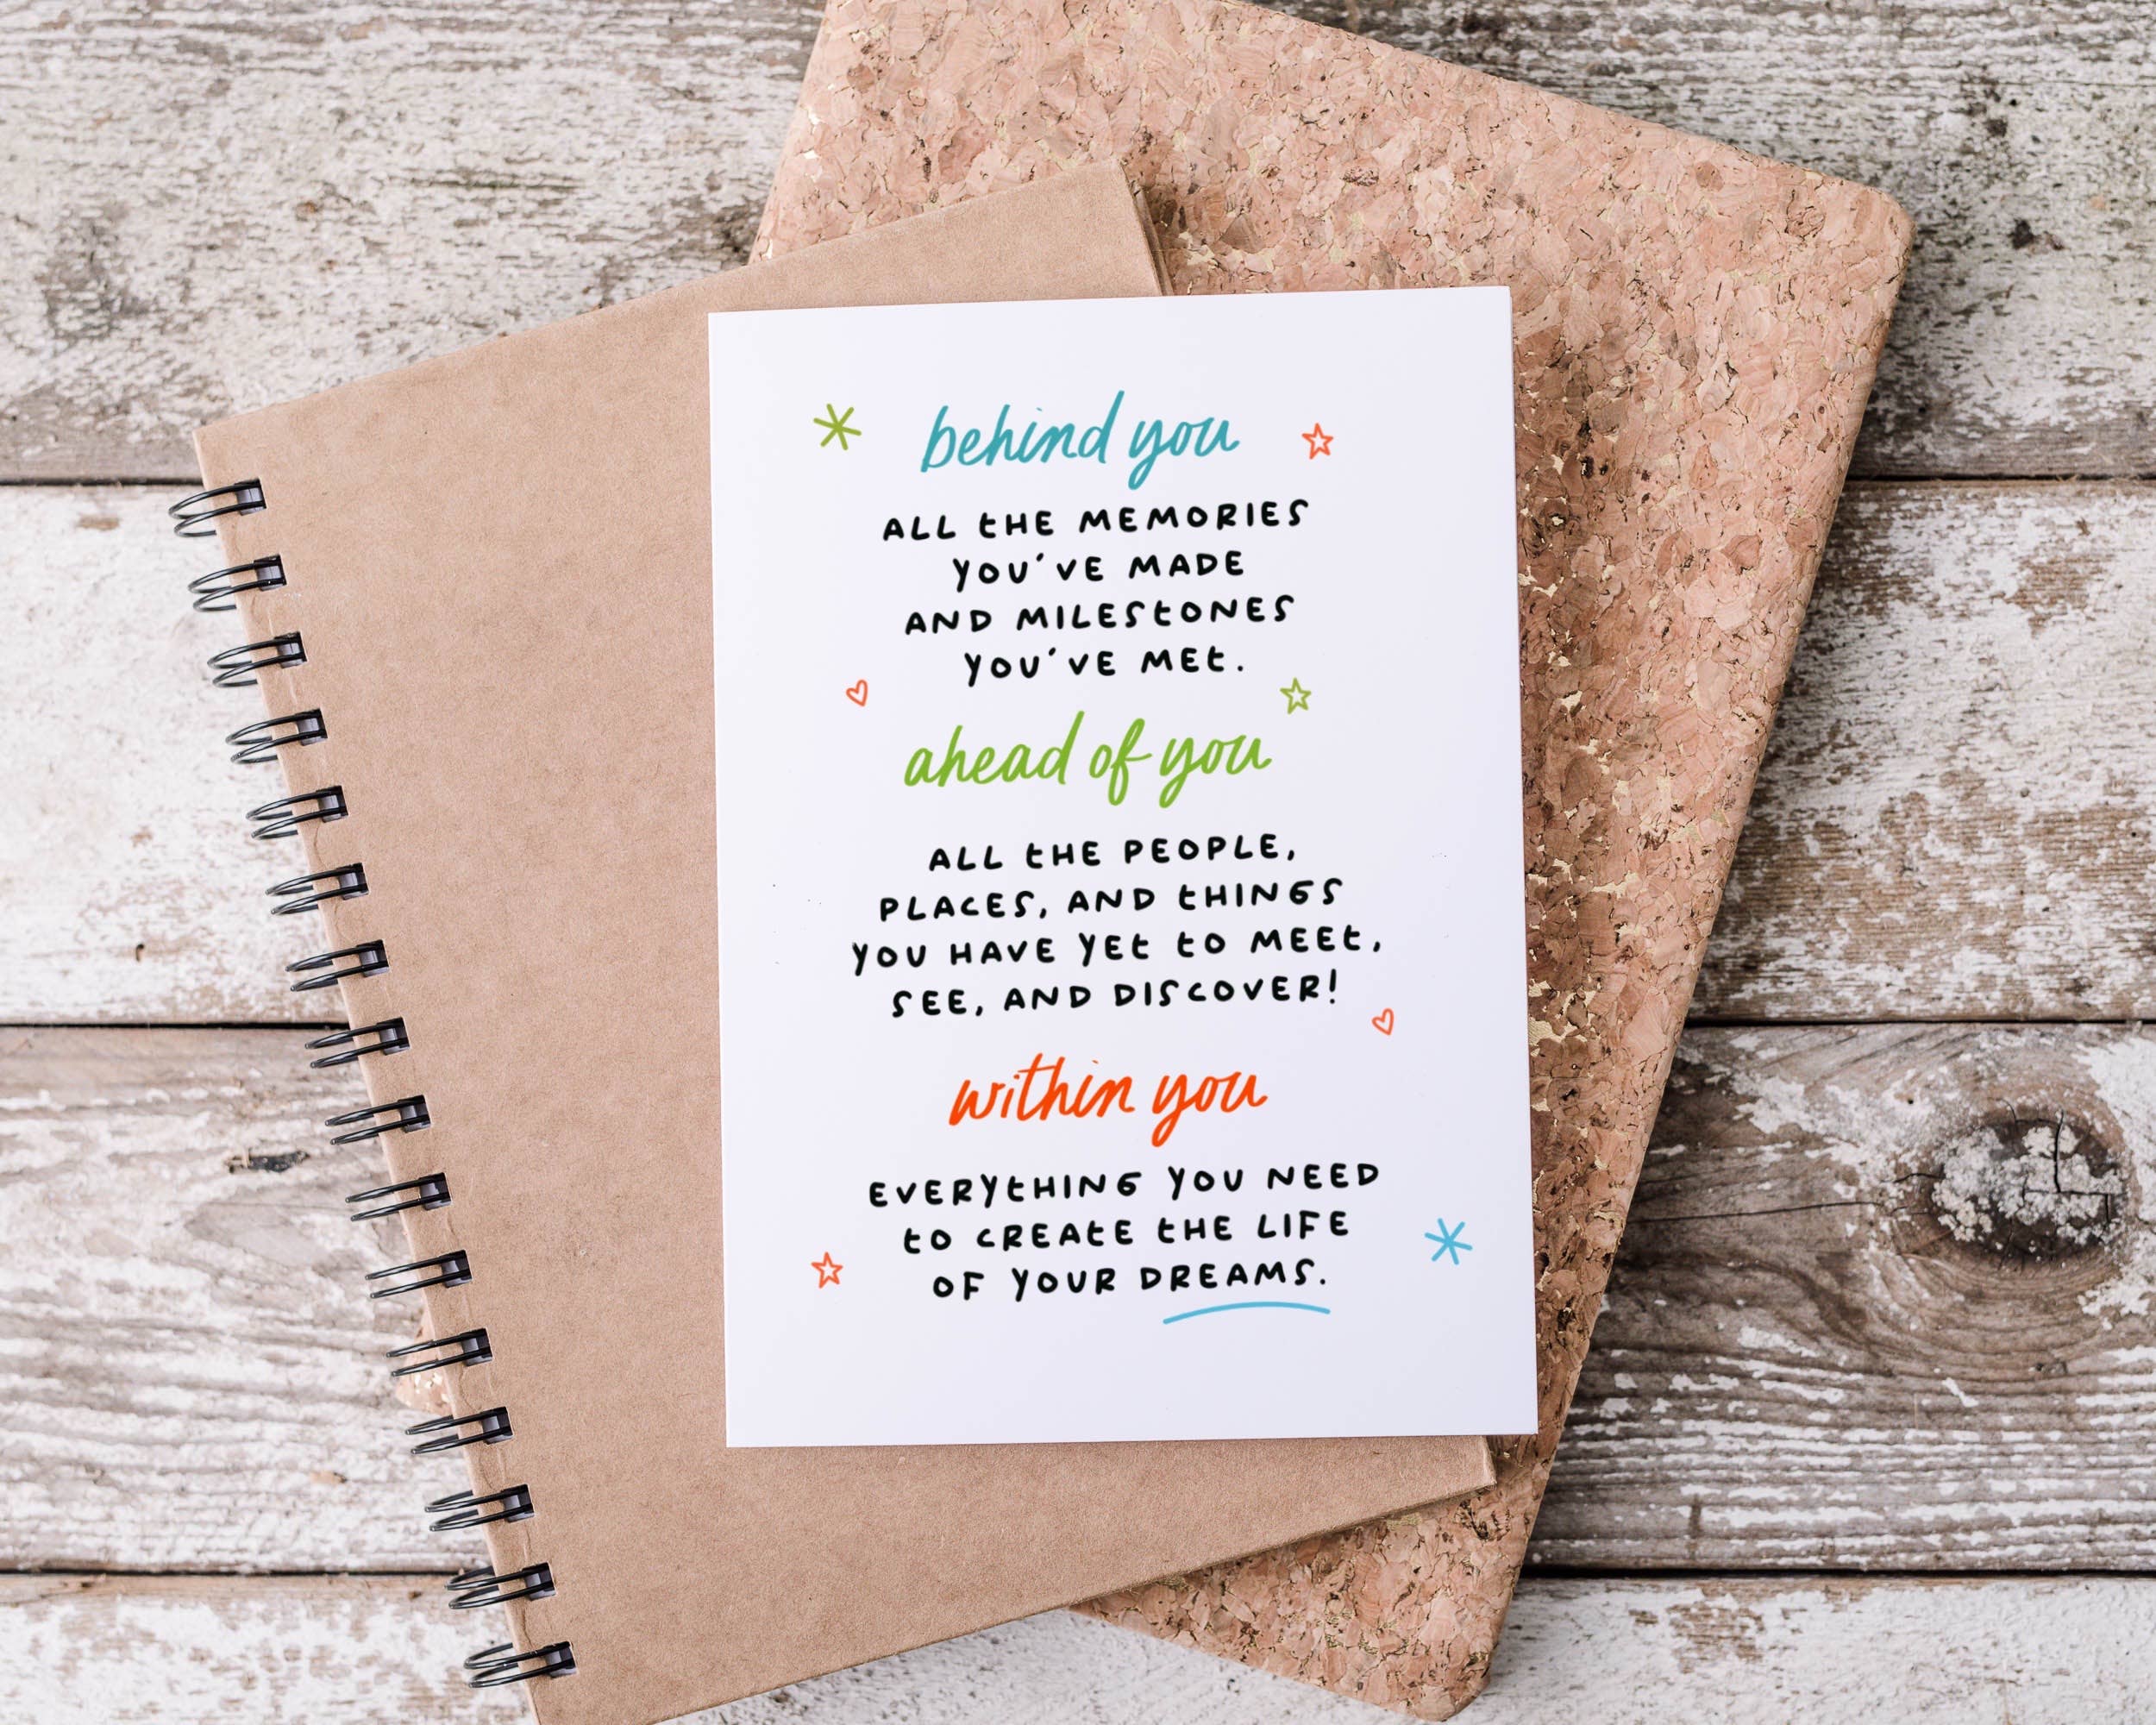 behind you
ALL tHE MEMORIES
YOU'VE MADE
AND MILEStONES
YOU'VE MEt.
ahead of you
ALL tHE PEOPLE,
PLACES, AND tHINGS
YOU HAVE YEt tO MEEt,
SEE, AND DISCOVER!
within you
EVERYtHING YOU NEED
tO CREAtE tHE LIFE
OF YOUR DREAMS.